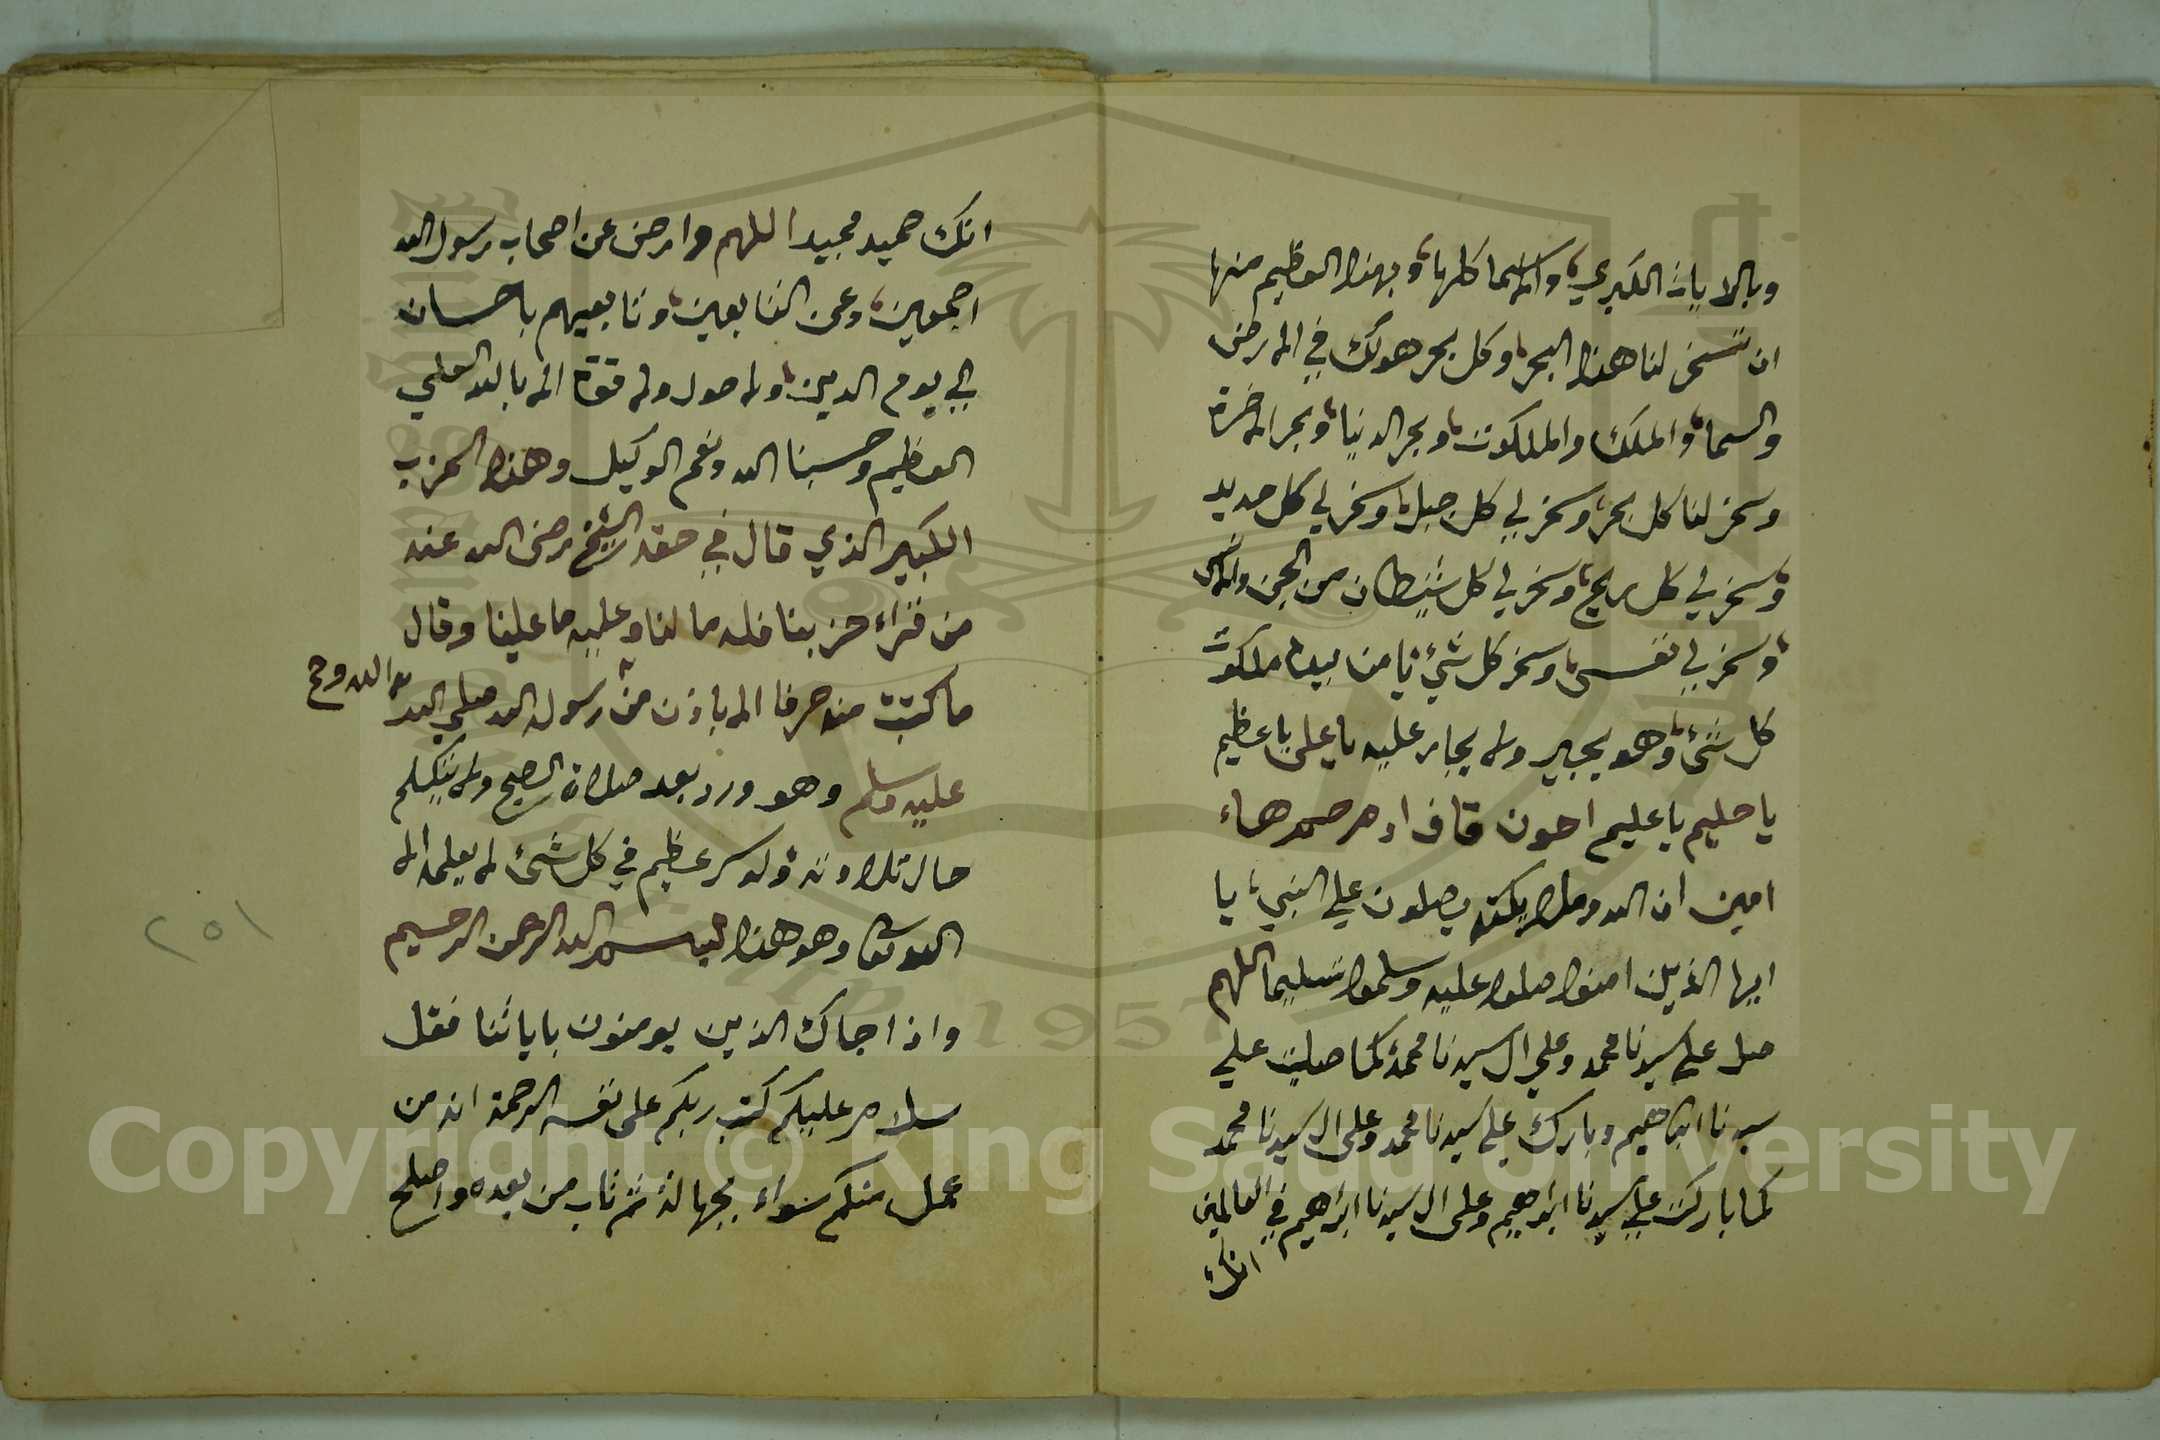 وبالايات الكبري، والاسما كلها، وبهذا العظيم منها
ان تسخر لنا هذا البحر، وكل بحر هو لك في الارض
والسما، والملك والملكوت، وبحر الدنيا، وبحر الاخرة
وسخر لنا كل بحر، وسخر لي كل جبل، وسخر لي كل حديد
وسخر لي كل ريح، وسخر لي كل شيطان من الجن والانس
، وسخر لي نفسي، وسخر كل شيء يا من بيده ملكوت
كل شيء، وهو يجير ولا يجار عليه يا علي يا عظيم
يا حليم يا عليم احون قاف ادم حمد هاء
امين ان الله وملايكته يصلون علي النبي، يا
ايها الذين امنوا صلوا عليه وسلموا تسليما اللهم
صل علي سيدنا محمد وعلي ال سيدنا محمد كما صليت علي
سيدنا ابراهيم وبارك علي سيدنا محمد وعلي ال سيدنا محمد
كما باركت علي سيدنا ابراهيم وعلي ال سيدنا ابراهيم في العالمين
انك
انك حميد مجيد اللهم وارض عن اصحاب رسول الله
اجمعين، وعن التابعين، وتابعيهم باحسان
الي يوم الدين، ولا حول ولا قوة الا بالله العلي
العظيم وحسبنا الله ونعم الوكيل وهذا الحزب
الكبير الذي قال في حقه الشيخ رضي الله عنه
من قراء حزبنا فله ما لنا وعليه ما علينا وقال
ما كتبت منه حرفا الا باذن من رسول الله صلي الله
عليه وسلم وهو ورد بعد صلاة الصبح ولا يتكلم
حال تلاوته وله سر عظيم في كل شيء لا يعلمه الا
الله تعا وهو هذا بسم الله الرحمن الرحيم
واذا جاك الذين يومنون باياتنا فقل
سلام عليكم كتب ربكم على نفسه الرحمة انه من
عمل منكم سواء بجهالة ثم تاب من بعده واصلح
٢٥١
Copyright © King Saud University
1957